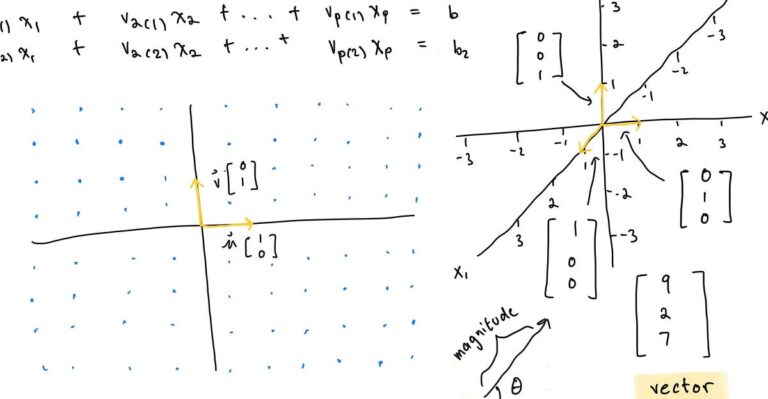 1) x₁ + v₂₍₁₎ x₂ + ... + vₚ₍₁₎ xₚ = b
2) x₁ + v₂₍₂₎ x₂ + ... + vₚ₍₂₎ xₚ = b₂
v [0 1]
u [1 0]
3
2
1
[0 0 1]
-3
-2
-1
-3 -2 -1 1 2 3 x
1
2
3
-1
-2
-3
[0 1 0]
[1 0 0]
x₁
[9 2 7]
magnitude
θ
vector